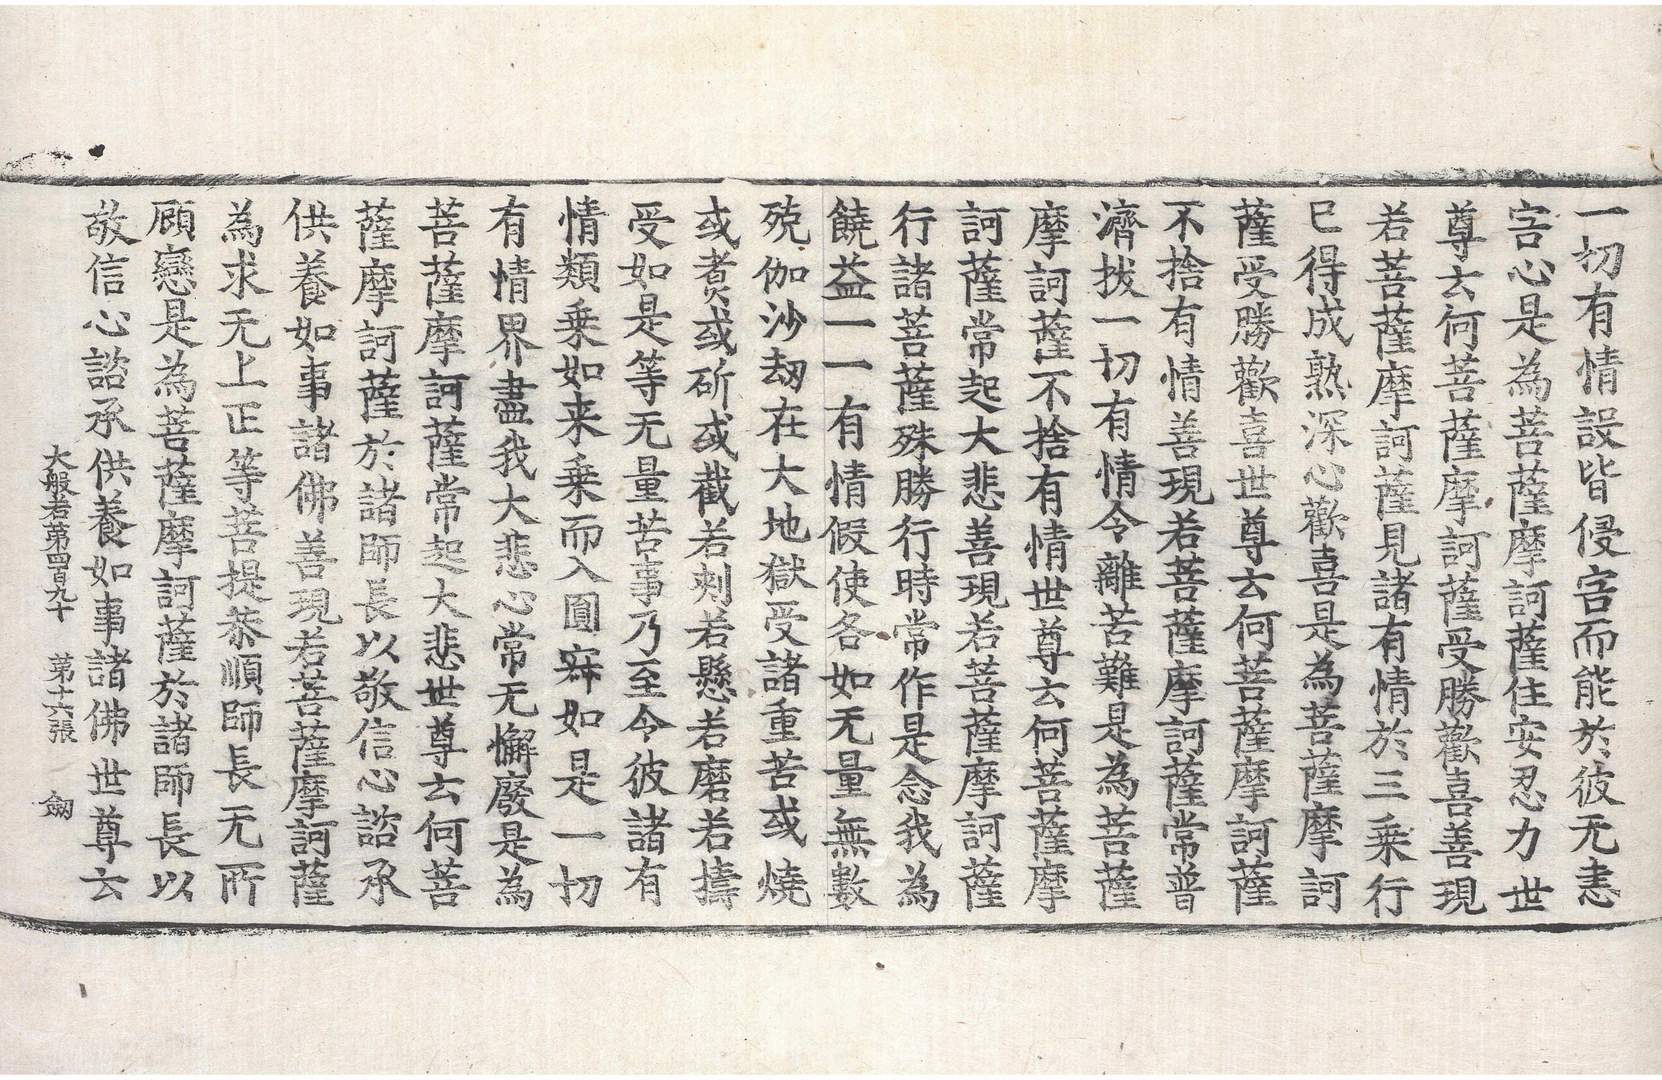 一切有情設皆侵害而能於彼无恚
害心是為菩薩摩訶薩住安忍力世
尊云何菩薩摩訶薩受勝歡喜善現
若菩薩摩訶薩見諸有情於三乗行
已得成熟深心歡喜是為菩薩摩訶
薩受勝歡喜世尊云何菩薩摩訶薩
不捨有情善現若菩薩摩訶薩常普
濟拔一切有情令離苦難是為菩薩
摩訶薩不捨有情世尊云何菩薩摩
訶薩常起大悲善現若菩薩摩訶薩
行諸菩薩殊勝行時常作是念我為
饒益一一有情假使各如无量無數
殑伽沙劫在大地獄受諸重苦或燒
或煮或斫或截若刺若懸若磨若擣
受如是等无量苦事乃至令彼諸有
情類乗如来乗而入圓寂如是一切
有情界盡我大悲心常无懈廢是為
菩薩摩訶薩常起大悲世尊云何菩
薩摩訶薩於諸師長以敬信心諮承
供養如事諸佛善現若菩薩摩訶薩
為求无上正等菩提恭順師長无所
顧戀是為菩薩摩訶薩於諸師長以
敬信心諮承供養如事諸佛世尊云
大般若第四百九十　第十六張　劒